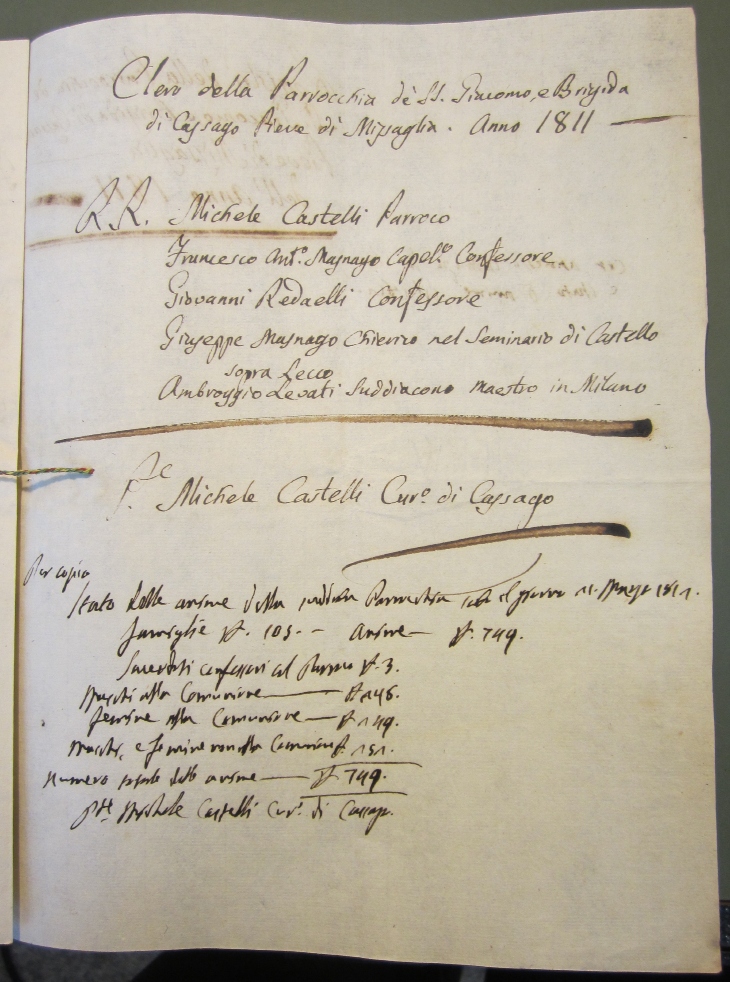 Clero della Parrocchia de SS. Giacomo, e Brigida
di Cassago Pieve di Missaglia. Anno 1811
R.R. Michele Castelli Parroco
Francesco Ant.o Masnago Capel.o Confessore
Giovanni Redaelli Confessore
Giuseppe Masnago Chierico nel Seminario di Castello
sopra Lecco
Ambroggio Levati Suddiacono Maestro in Milano
Michele Castelli Cur.o di Cassago
Per copia
Stato delle anime della Parrocchia il giorno 11. 1811.
famiglie N. 105. - Anime - N. 749.
Sacerdoti confessori col Parroco N. 3.
Maschi alla Comunione
femine alla Comunione
Maschi, e femine non alla Comunione N. 151.
Numero totale delle anime - N. 749.
Michele Castelli Cur.o di Cassago